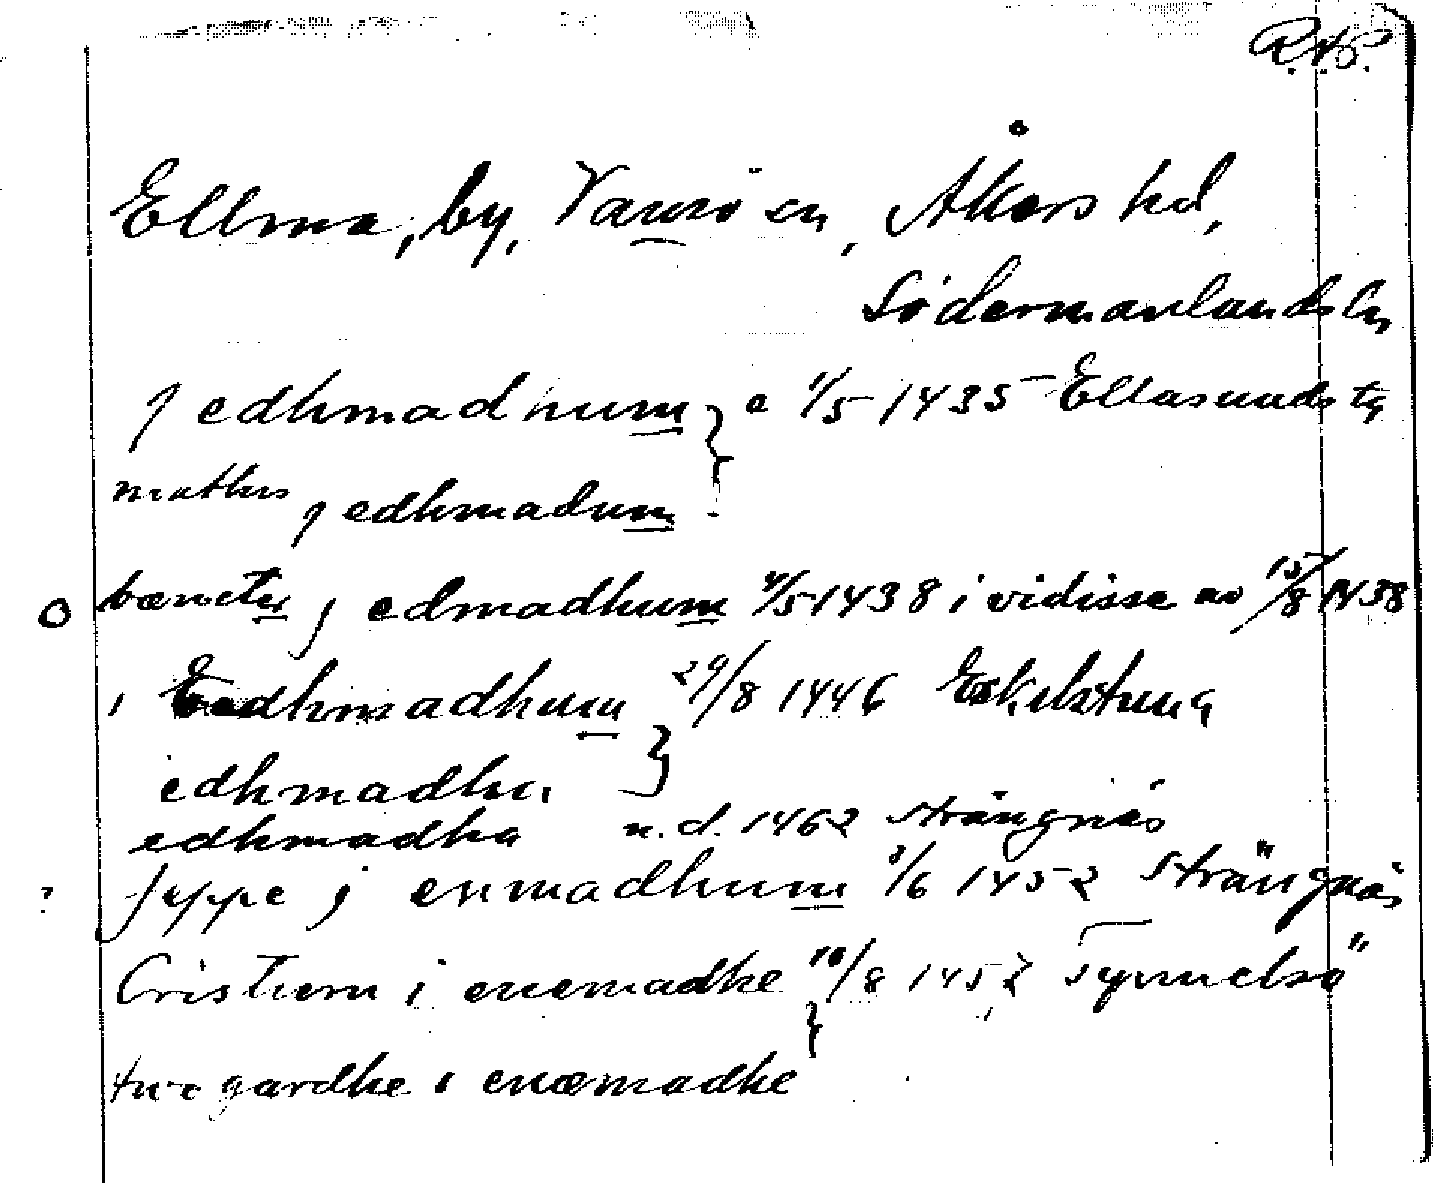 R.A.P.
Ellma, by, Vansö sn, Åkers hd,
Södermanlands län
j edhmadhum } 1/5 1435 Ellasunds tg
mathus j edhmadum
O bænctu j edmadhum 4/5 1438 i vidisse av 15/8 1438
i Eedhmadhum 29/8 1446 Eskilstuna
edhmadha }
edhmadha u.d. 1462 Strängnäs
? Jeppe j enmadhum 3/6 1452 Strängnäs
Cristiern i enemadhe 10/8 1452 Tynnelsö
two gardhe i enæmadhe }